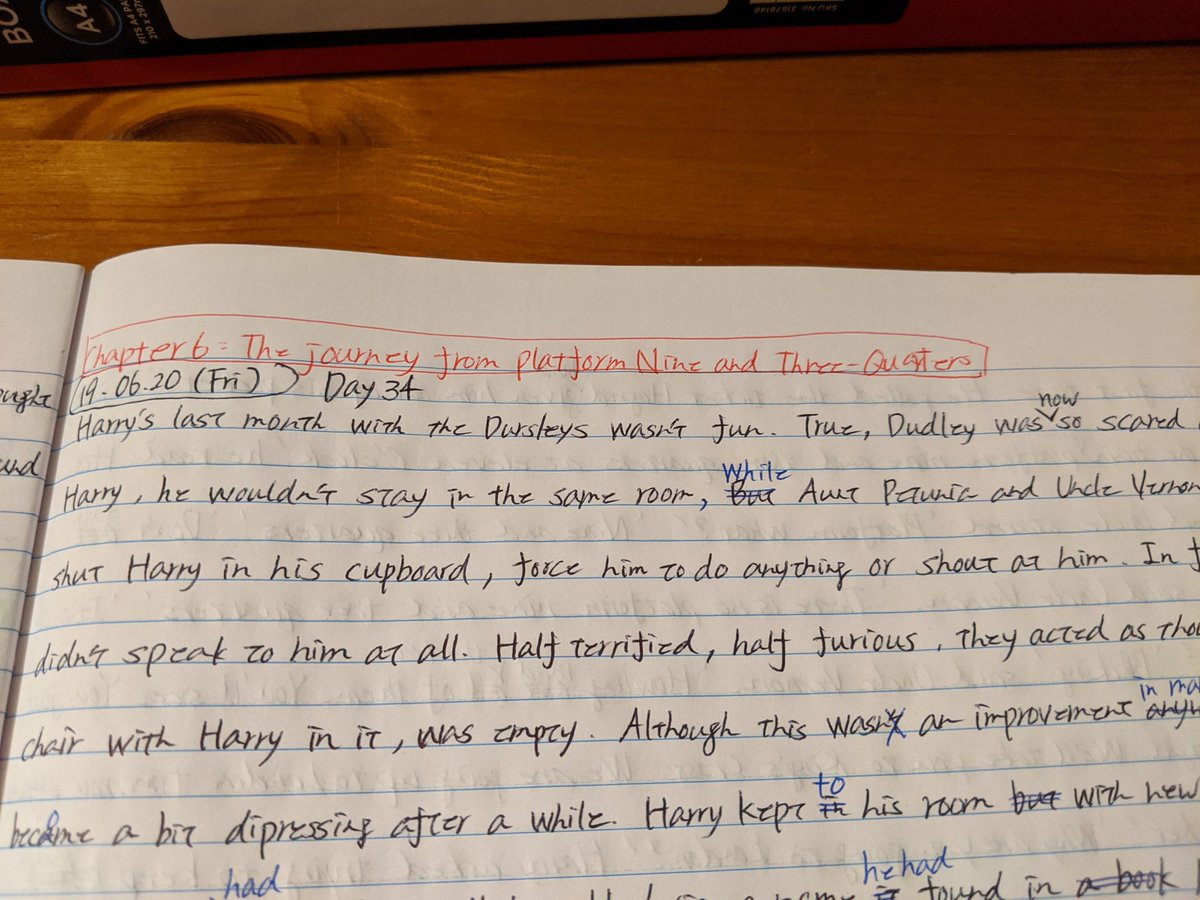 BOX
A4
FITS A4 PA
210 x 297
SKU NO. 31078148
Chapter 6: The journey from platform Nine and Three-Quaters
19.06.20 (Fri) Day 34
ought
Harry's last month with the Dursleys wasn't fun. True, Dudley was now so scared
und
Harry, he wouldn't stay in the same room, While But Aunt Petunia and Uncle Vernon
shut Harry in his cupboard, force him to do anything or shout at him. In f
didn't speak to him at all. Half terrified, half furious, they acted as thou
chair with Harry in it, was empty. Although this wasn't an improvement in ma anyw
became a bit dipressing after a while. Harry kept to in his room but with new
had he had
found in a book